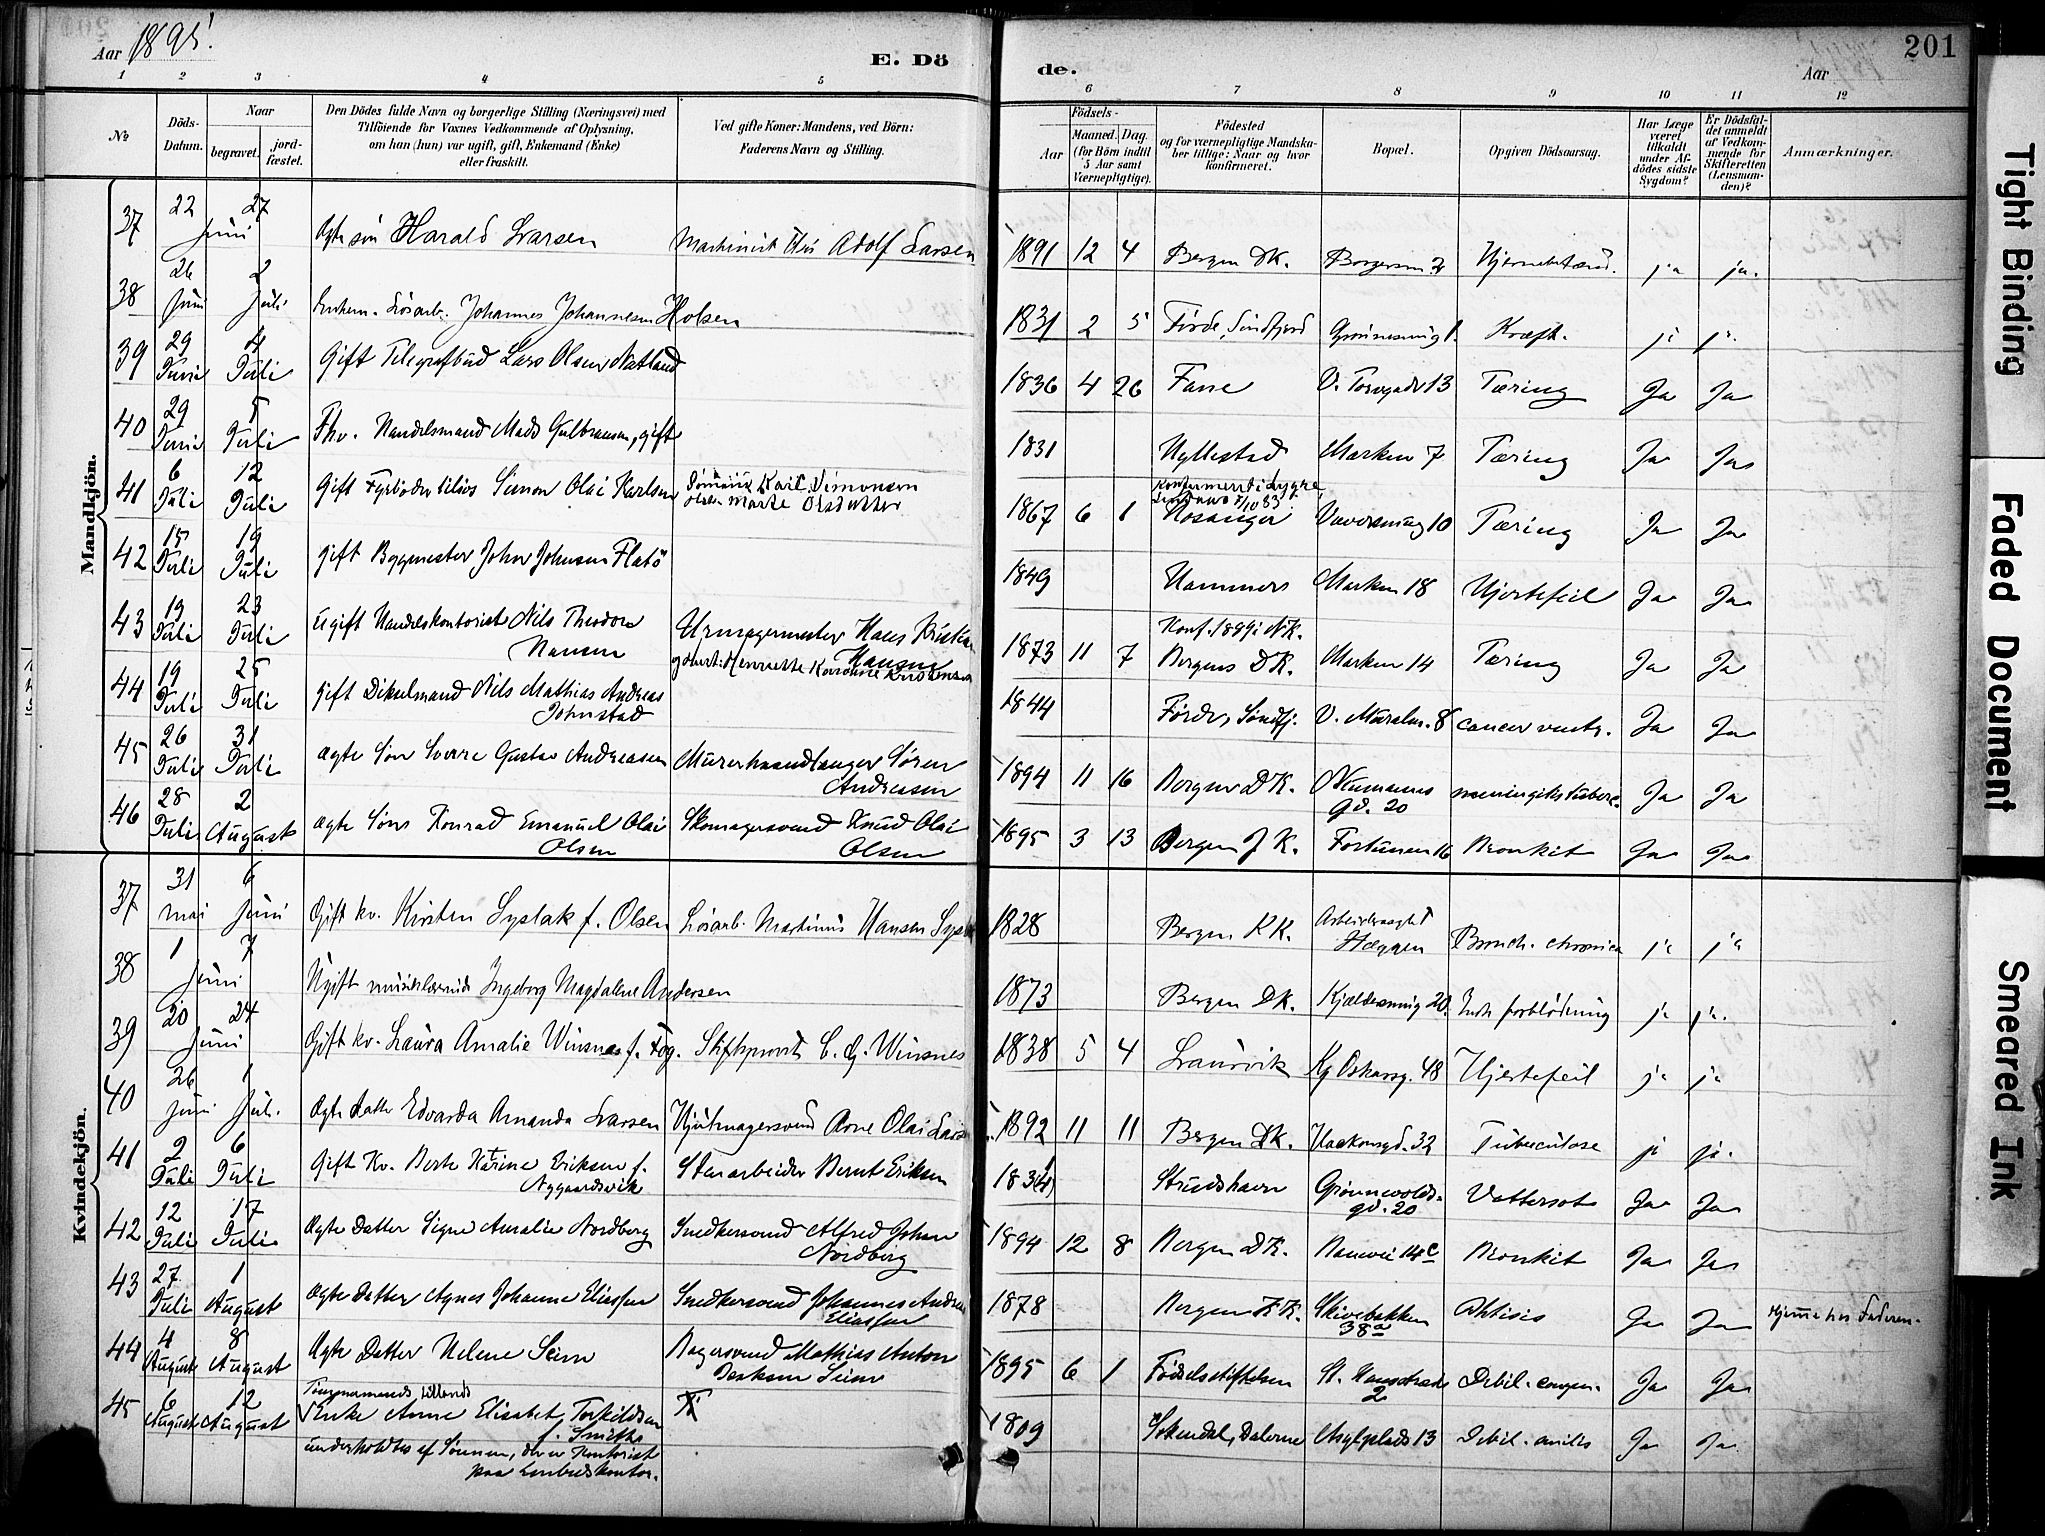 Aar 1895.
E. Döde.
Aar
201
1 2 3 4 5 6 7 8 9 10 11 12
No
Döds-Datum.
Naar
begravet.
jord-fæstet.
Den Dödes fulde Navn og borgerlige Stilling (Næringsvei) med
Tilföiende for Voxnes Vedkommende af Oplysning,
om han (hun) var ugift, gift, Enkemand (Enke)
eller fraskilt.
Ved gifte Koner: Mandens, ved Börn:
Faderens Navn og Stilling.
Födsels-
Aar
Maaned. Dag.
(for Börn indtil
5 Aar samt
Værnepligtige).
Födested
og for værnepligtige Mandska-
ber tillige: Naar og hvor
konfirmeret.
Bopæl.
Opgiven Dödsaarsag.
Har Læge
været
tilkaldt
under Af-
dödes sidste
Sygdom?
Er Dödsfal-
det anmeldt
af Vedkom-
mende for
Skifteretten
(Lensman-
den)?
Anmærkninger.
Mandkjön.
37 22 27 Juni Ægte søn Harald Larsen Machinist Adolf Larsen 1891 12 4 Bergen DK. Hjernebetænd. ja ja.
38 26 Juni 2 Juli Enkem. Løsarb. Johannes Johannesen Holsen 1831 2 5 Førde, Søndfjord Kræft. ja ja
39 29 Juni 4 Juli Gift Telegrafbud Lars Olsen Natland 1836 4 26 Fane V. Torvgade 13 Tæring Ja Ja
40 29 Juni 5 Juli Fhv. Handelsmand Mads Gulbransen, gift 1831 Hyllestad Marken 7 Tæring Ja Ja
41 6 Juli 12 Juli Gift Fyrbøder tilsøs Simon Olai Karlsen Karl Simonsen
Marte Olsdatter 1867 6 1 Hosanger 10 Tæring Ja Ja
42 15 Juli 19 Juli Gift Bygmester John Johnsen Flatø 1849 Hammers Marken 18 Hjertefeil Ja Ja
43 19 Juli 23 Juli Ugift Handelskontorist Nils Theodor
Hansen Urmagermester Hans Kristian
Hansen 1873 11 7 Konf. 1889 i NK.
Bergens DK. Marken 14 Tæring Ja Ja
44 19 Juli 25 Juli Gift Dikselmand Nils Mathias Andreas
Johnstad 1844 Førde, Søndfj. 8 cancer ventr. Ja Ja
45 26 Juli 31 Juli Ægte Søn Sverre Gustav Andreassen Murerhaandlanger Søren
Andreassen 1894 11 16 Bergen DK. Neumanns
gd. 20 meningitis tuberc. Ja Ja
46 28 Juli 2 August Ægte Søn Konrad Emanuel Olai
Olsen Skomagersvend Knud Olai
Olsen 1895 3 13 Bergen JK. Fortunen 16 Bronkit Ja Ja
Kvindekjön.
37 31 mai 6 Juni Gift kv. Kirsten Systak f. Olsen Løsarb. Martinus Hansen 1828 Bergen KK. Hæggen Bronch. chronica ja ja
38 1 7 Juni Ugift Ingeborg Magdalene Andersen 1873 Bergen DK. Kjældersmug 20. forblødning ja ja.
39 20 24 Juni Gift kv. Laura Amalie Winsnes f. Fog. Stiftsprovst C. G. Winsnes 1838 5 4 Laurvik Kg Oskarsg. 48 Hjertefeil ja ja
40 26 Juni 1 Jul. Ægte Datter Edvarda Amanda Larsen Hjulmagersvend Arne Olai Larsen 1892 11 11 Bergen DK. Haakonsgd. 32 Tuberculose ja ja.
41 2 Juli 6 Juli Gift Kv. Berte Karine Eriksen f.
Nygaardsvik Stenarbeider Bernt Eriksen 1834 Strudshavn Grønnevolds-
gd. 20 Vattersot Ja Ja
42 12 Juli 17 Juli Ægte Datter Signe Amalie Nordberg Snedkersvend Alfred Johan
Nordberg 1894 12 8 Bergen DK. 14c Bronkit Ja Ja
43 27 Juli 1 August Ægte Datter Agnes Johanne Eliassen Snedkersvend Johannes Andreas
Eliassen 1878 Bergen KK. Skivebakken
38a Phtisis Ja Ja Hjemme hos Faderen.
44 4 August 8 August Ægte Datter Helene Seim Bagersvend Mathias Anton
Seim 1895 6 1 Fødselsstiftelsen 2 Debil. congen. Ja Ja
45 6 August 12 August Enke Anne Elisabet Torkildsen
f. Smith
underholdtes af Sønnen, der er Kontorist
paa 1809 Sokendal, Dalerne Asylplads 13 Debil. senilis Ja Ja
Tight Binding
Faded Document
Smeared Ink